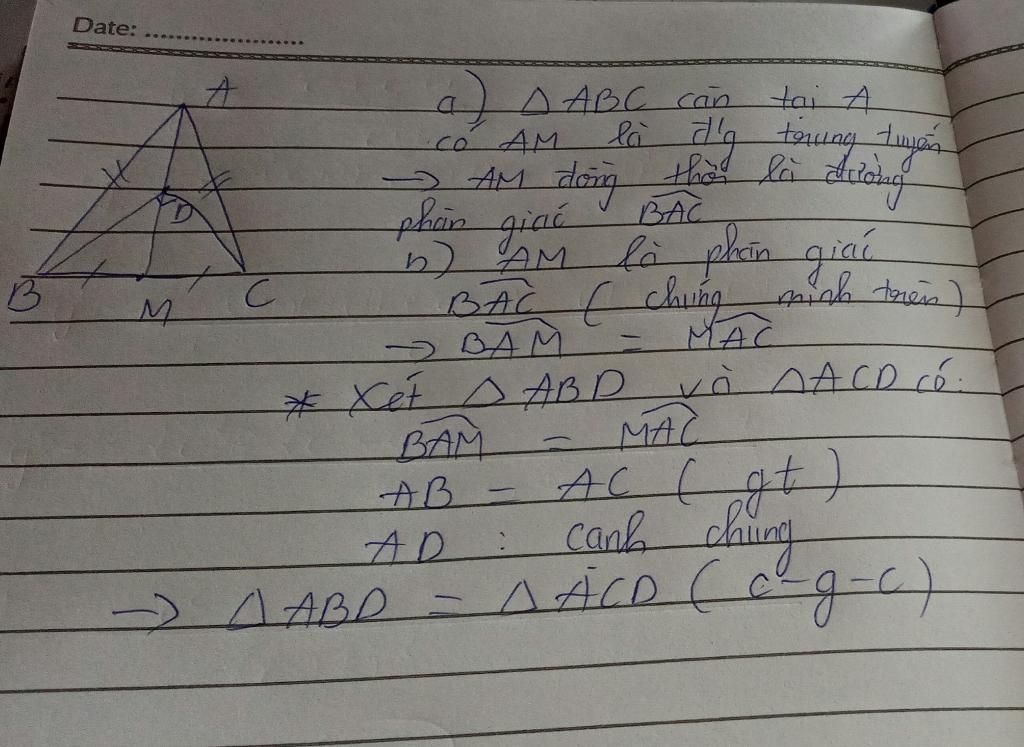 Date: .....................
A
B
M
C
D
a) Δ ABC cân tại A
có AM là đ'g trung tuyến
→ AM đồng thời là đường
phân giác BAC
b) AM là phân giác
BAC ( chứng minh trên )
→ BAM = MAC
* Xét Δ ABD và Δ ACD có:
BAM = MAC
AB = AC ( gt )
AD : cạnh chung
→ Δ ABD = Δ ACD ( c-g-c )